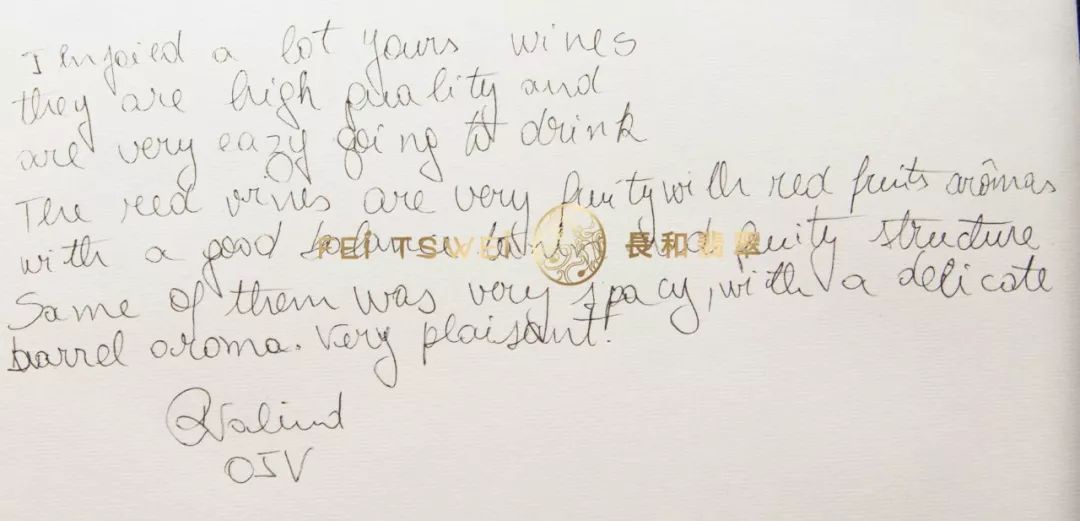 I Enjoied a lot yours wines
they are high quality and
are very eazy going to drink
The red wines are very fruity with red fruits arômas
with a good balance and fruity structure
FEI TSWEI 長和翡翠
Same of them was very spacy, with a delicate
barrel aroma. Very plaisant!
OIV